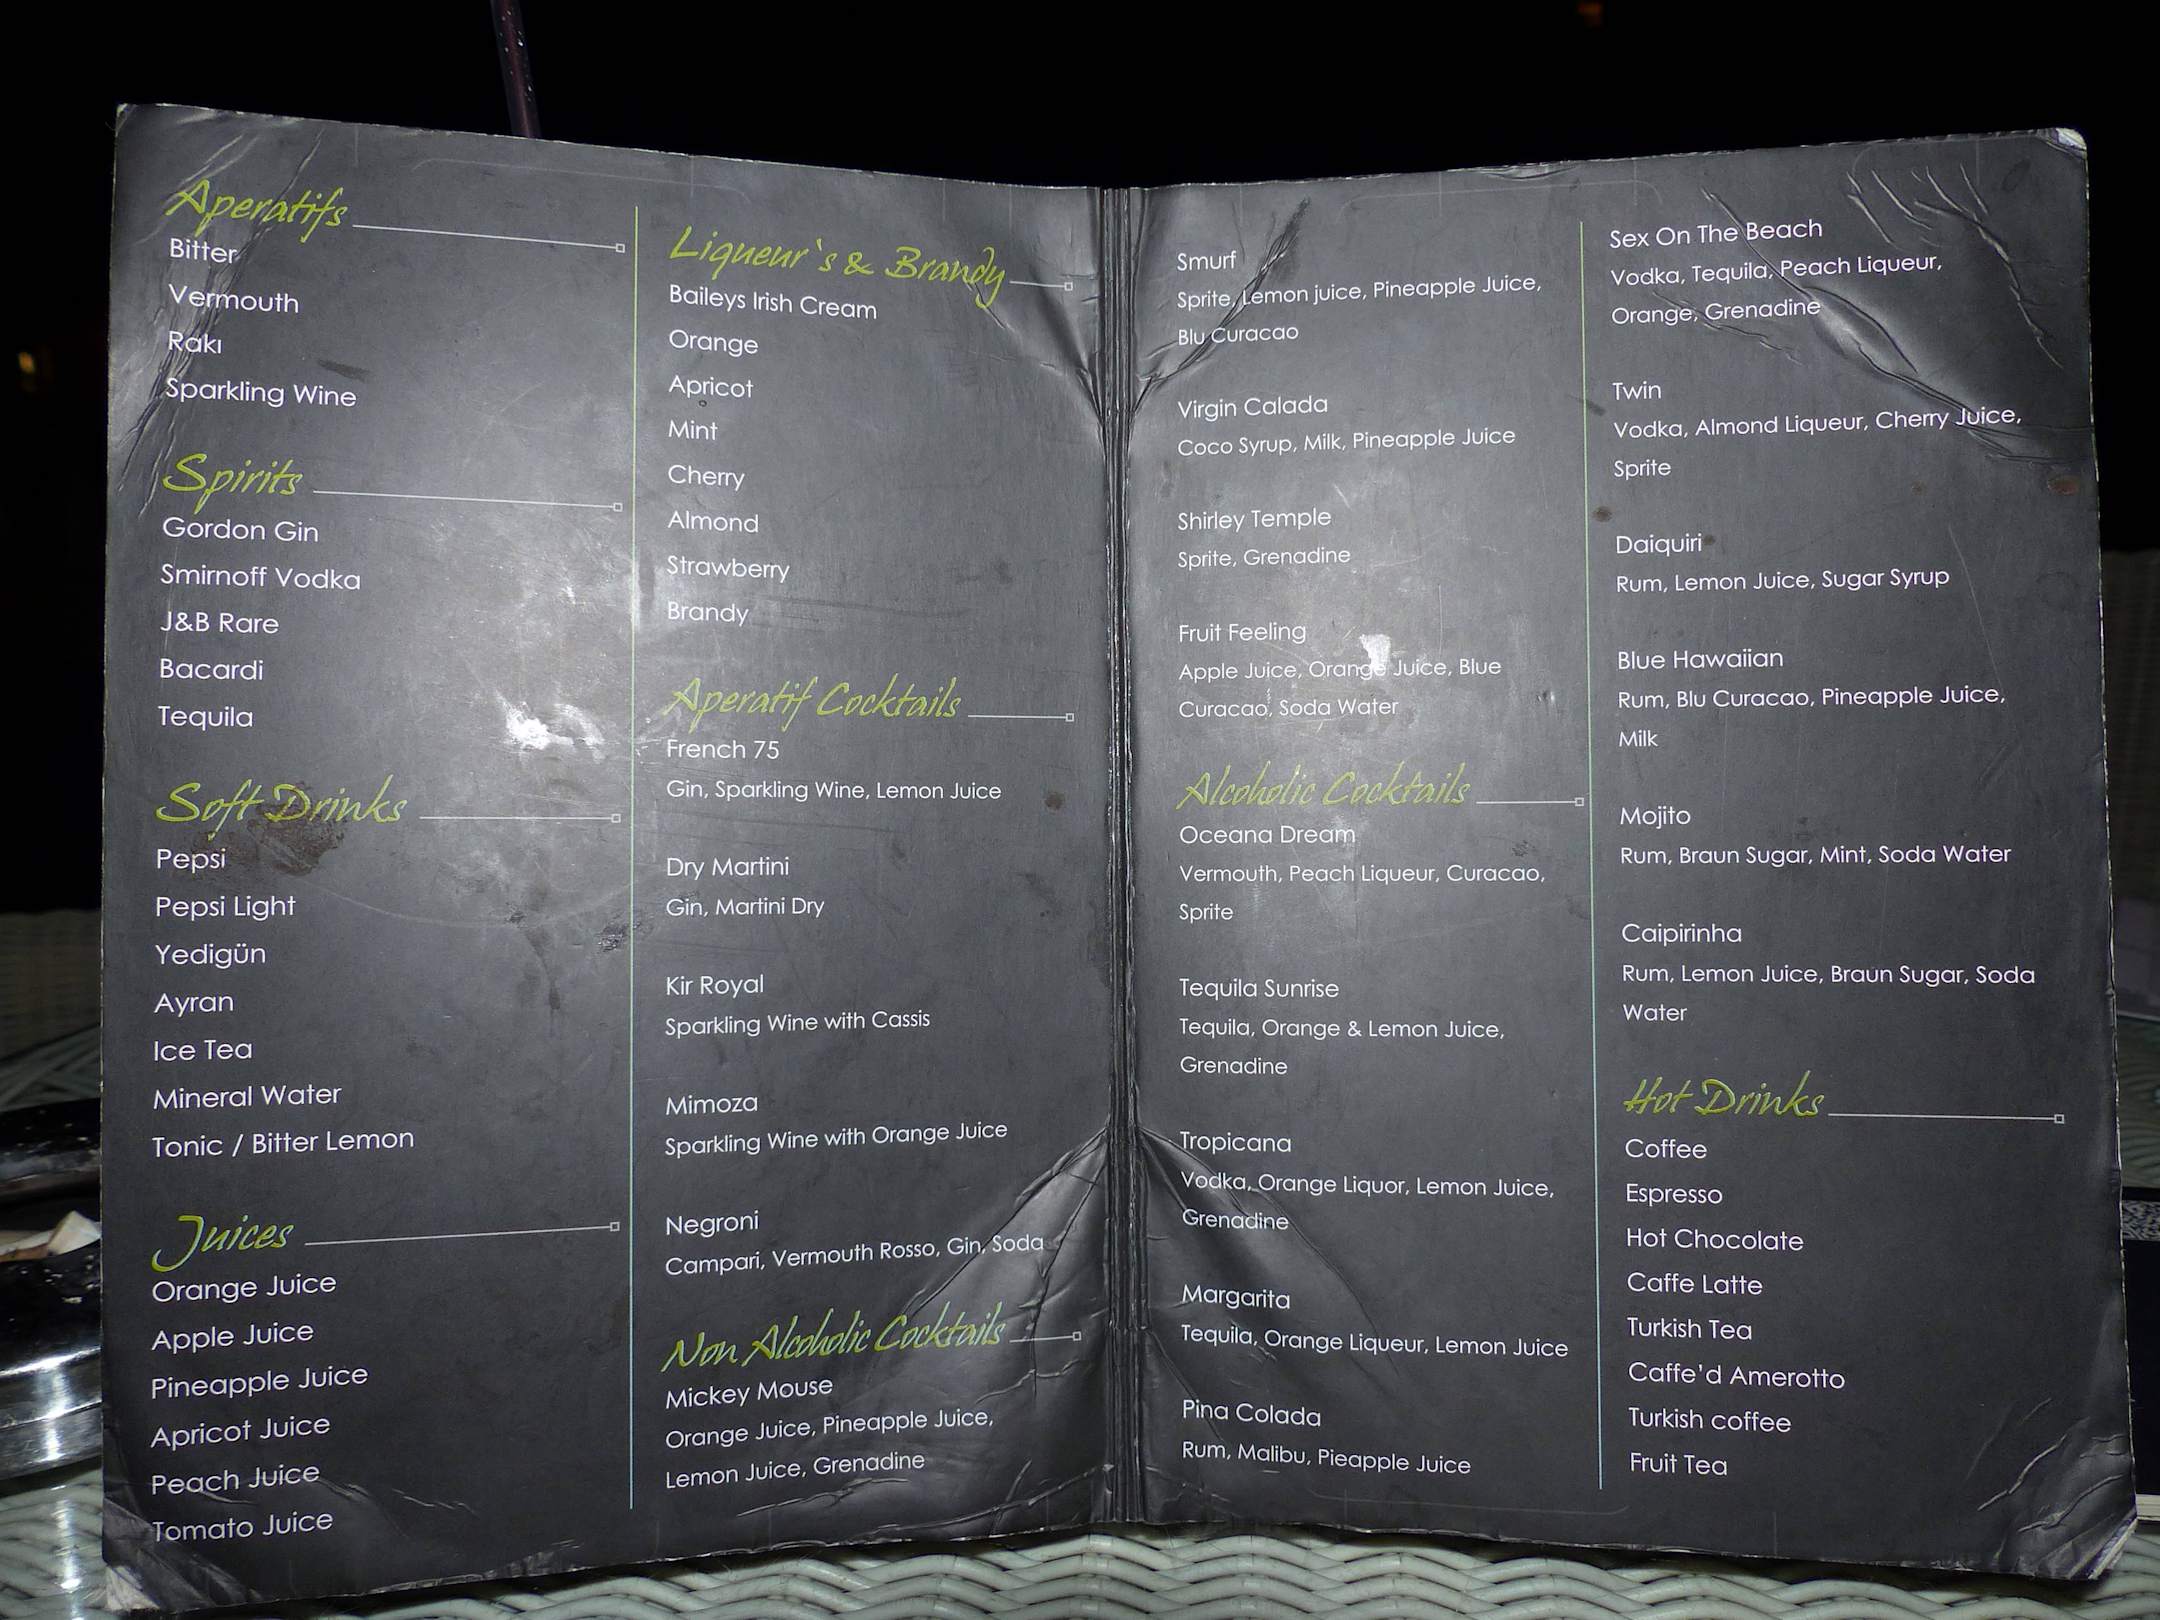 Aperatifs
Bitter
Vermouth
Rakı
Sparkling Wine
Spirits
Gordon Gin
Smirnoff Vodka
J&B Rare
Bacardi
Tequila
Soft Drinks
Pepsi
Pepsi Light
Yedigün
Ayran
Ice Tea
Mineral Water
Tonic / Bitter Lemon
Juices
Orange Juice
Apple Juice
Pineapple Juice
Apricot Juice
Peach Juice
Tomato Juice
Liqueur`s & Brandy
Baileys Irish Cream
Orange
Apricot
Mint
Cherry
Almond
Strawberry
Brandy
Aperatif Cocktails
French 75
Gin, Sparkling Wine, Lemon Juice
Dry Martini
Gin, Martini Dry
Kir Royal
Sparkling Wine with Cassis
Mimoza
Sparkling Wine with Orange Juice
Negroni
Campari, Vermouth Rosso, Gin, Soda
Non Alcoholic Cocktails
Mickey Mouse
Orange Juice, Pineapple Juice,
Lemon Juice, Grenadine
Smurf
Sprite, Lemon juice, Pineapple Juice,
Blu Curacao
Virgin Calada
Coco Syrup, Milk, Pineapple Juice
Shirley Temple
Sprite, Grenadine
Fruit Feeling
Apple Juice, Orange Juice, Blue
Curacao, Soda Water
Alcoholic Cocktails
Oceana Dream
Vermouth, Peach Liqueur, Curacao,
Sprite
Tequila Sunrise
Tequila, Orange & Lemon Juice,
Grenadine
Tropicana
Vodka, Orange Liquor, Lemon Juice,
Grenadine
Margarita
Tequila, Orange Liqueur, Lemon Juice
Pina Colada
Rum, Malibu, Pieapple Juice
Sex On The Beach
Vodka, Tequila, Peach Liqueur,
Orange, Grenadine
Twin
Vodka, Almond Liqueur, Cherry Juice,
Sprite
Daiquiri
Rum, Lemon Juice, Sugar Syrup
Blue Hawaiian
Rum, Blu Curacao, Pineapple Juice,
Milk
Mojito
Rum, Braun Sugar, Mint, Soda Water
Caipirinha
Rum, Lemon Juice, Braun Sugar, Soda
Water
Hot Drinks
Coffee
Espresso
Hot Chocolate
Caffe Latte
Turkish Tea
Caffe'd Amerotto
Turkish coffee
Fruit Tea